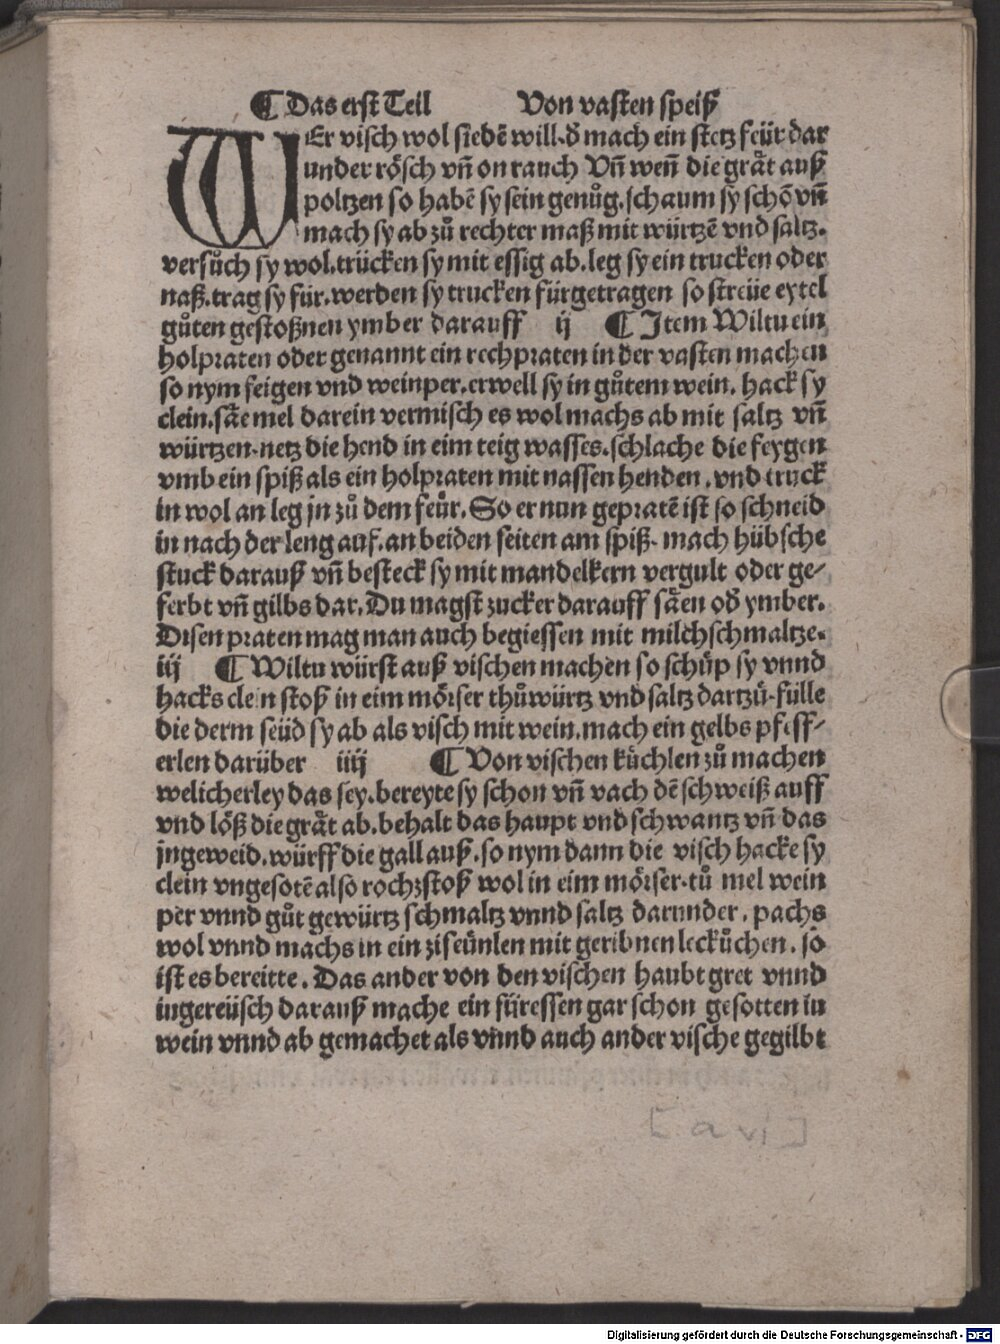 ¶ Das erst Teil Von vasten speiß
WEr visch wol siedē will. d̄ mach ein stetz feür dar
under rösch vñ on rauch Vñ weñ die gråt auß
poltzen so habē sy sein genůg. schaum sy schō vñ
mach sy ab zů rechter maß mit würtzē vnd saltz.
versůch sy wol. trücken sy mit essig ab. leg sy ein trucken oder
naß. trag sy für. werden sy trucken fürgetragen so streüe eytel
gůten gestoßnen ymber darauff ij ¶ Item Wiltu ein
holpraten oder genannt ein rechpraten in der vasten machen
so nym feigen vnd weinper. erwell sy in gůtem wein. hack sy
clein. såe mel darein vermisch es wol machs ab mit saltz vñ
würtzen. netz die hend in eim teig wasses. schlache die feygen
vmb ein spiß als ein holpraten mit nassen henden. vnd truck
in wol an leg jn zů dem feür. So er nun gepratē ist so schneid
in nach der leng auf. an beiden seiten am spiß. mach hübsche
stuck darauß vñ besteck sy mit mandelkern vergult oder ge⸗
ferbt vñ gilbs dar. Du magst zucker darauff såen od̄ ymber.
Disen praten mag man auch begiessen mit milchschmaltze.
iij ¶ Wiltu würst auß vischen machen so schüp sy vnnd
hacks clein stoß in eim mörser thů würtz vnd saltz dartzů. fülle
die derm seüd sy ab als visch mit wein. mach ein gelbs pfeff⸗
erlen darüber iiij ¶ Von vischen küchlen zů machen
welicherley das sey. bereyte sy schon vñ vach dē schweiß auff
vnd löß die gråt ab. behalt das haupt vnd schwantz vñ das
jngeweid. würff die gall auß. so nym dann die visch hacke sy
clein vngesotē also roch; stoß wol in eim mörser. tů mel wein
per vnnd gůt gewürtz schmaltz vnnd saltz darunder. pachs
wol vnnd machs in ein ziseünlen mit geribnen leckůchen. so
ist es bereitte. Das ander von den vischen haubt gret vnnd
ingereüsch darauß mache ein füressen gar schon gesotten in
wein vnnd ab gemachet als vnnd auch ander vische gegilbt
[a vi]
Digitalisierung gefördert durch die Deutsche Forschungsgemeinschaft - DFG